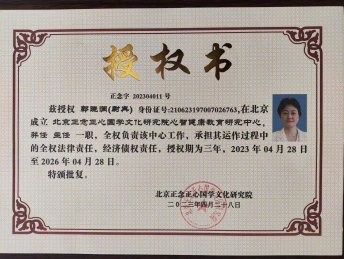 授权书
正念字 202304011 号
兹授权 郭晓澜(尉真) 身份证号:210623197007026763,在北京
成立 北京正念正心国学文化研究院心智健康教育研究中心,
并任 主任 一职,全权负责该中心工作,承担其运作过程中
的全权法律责任,经济债权责任,授权期为三年,2023 年 04 月 28 日
至 2026 年 04 月 28 日。
特颁批复。
北京正念正心国学文化研究院
二〇二三年四月二十八日